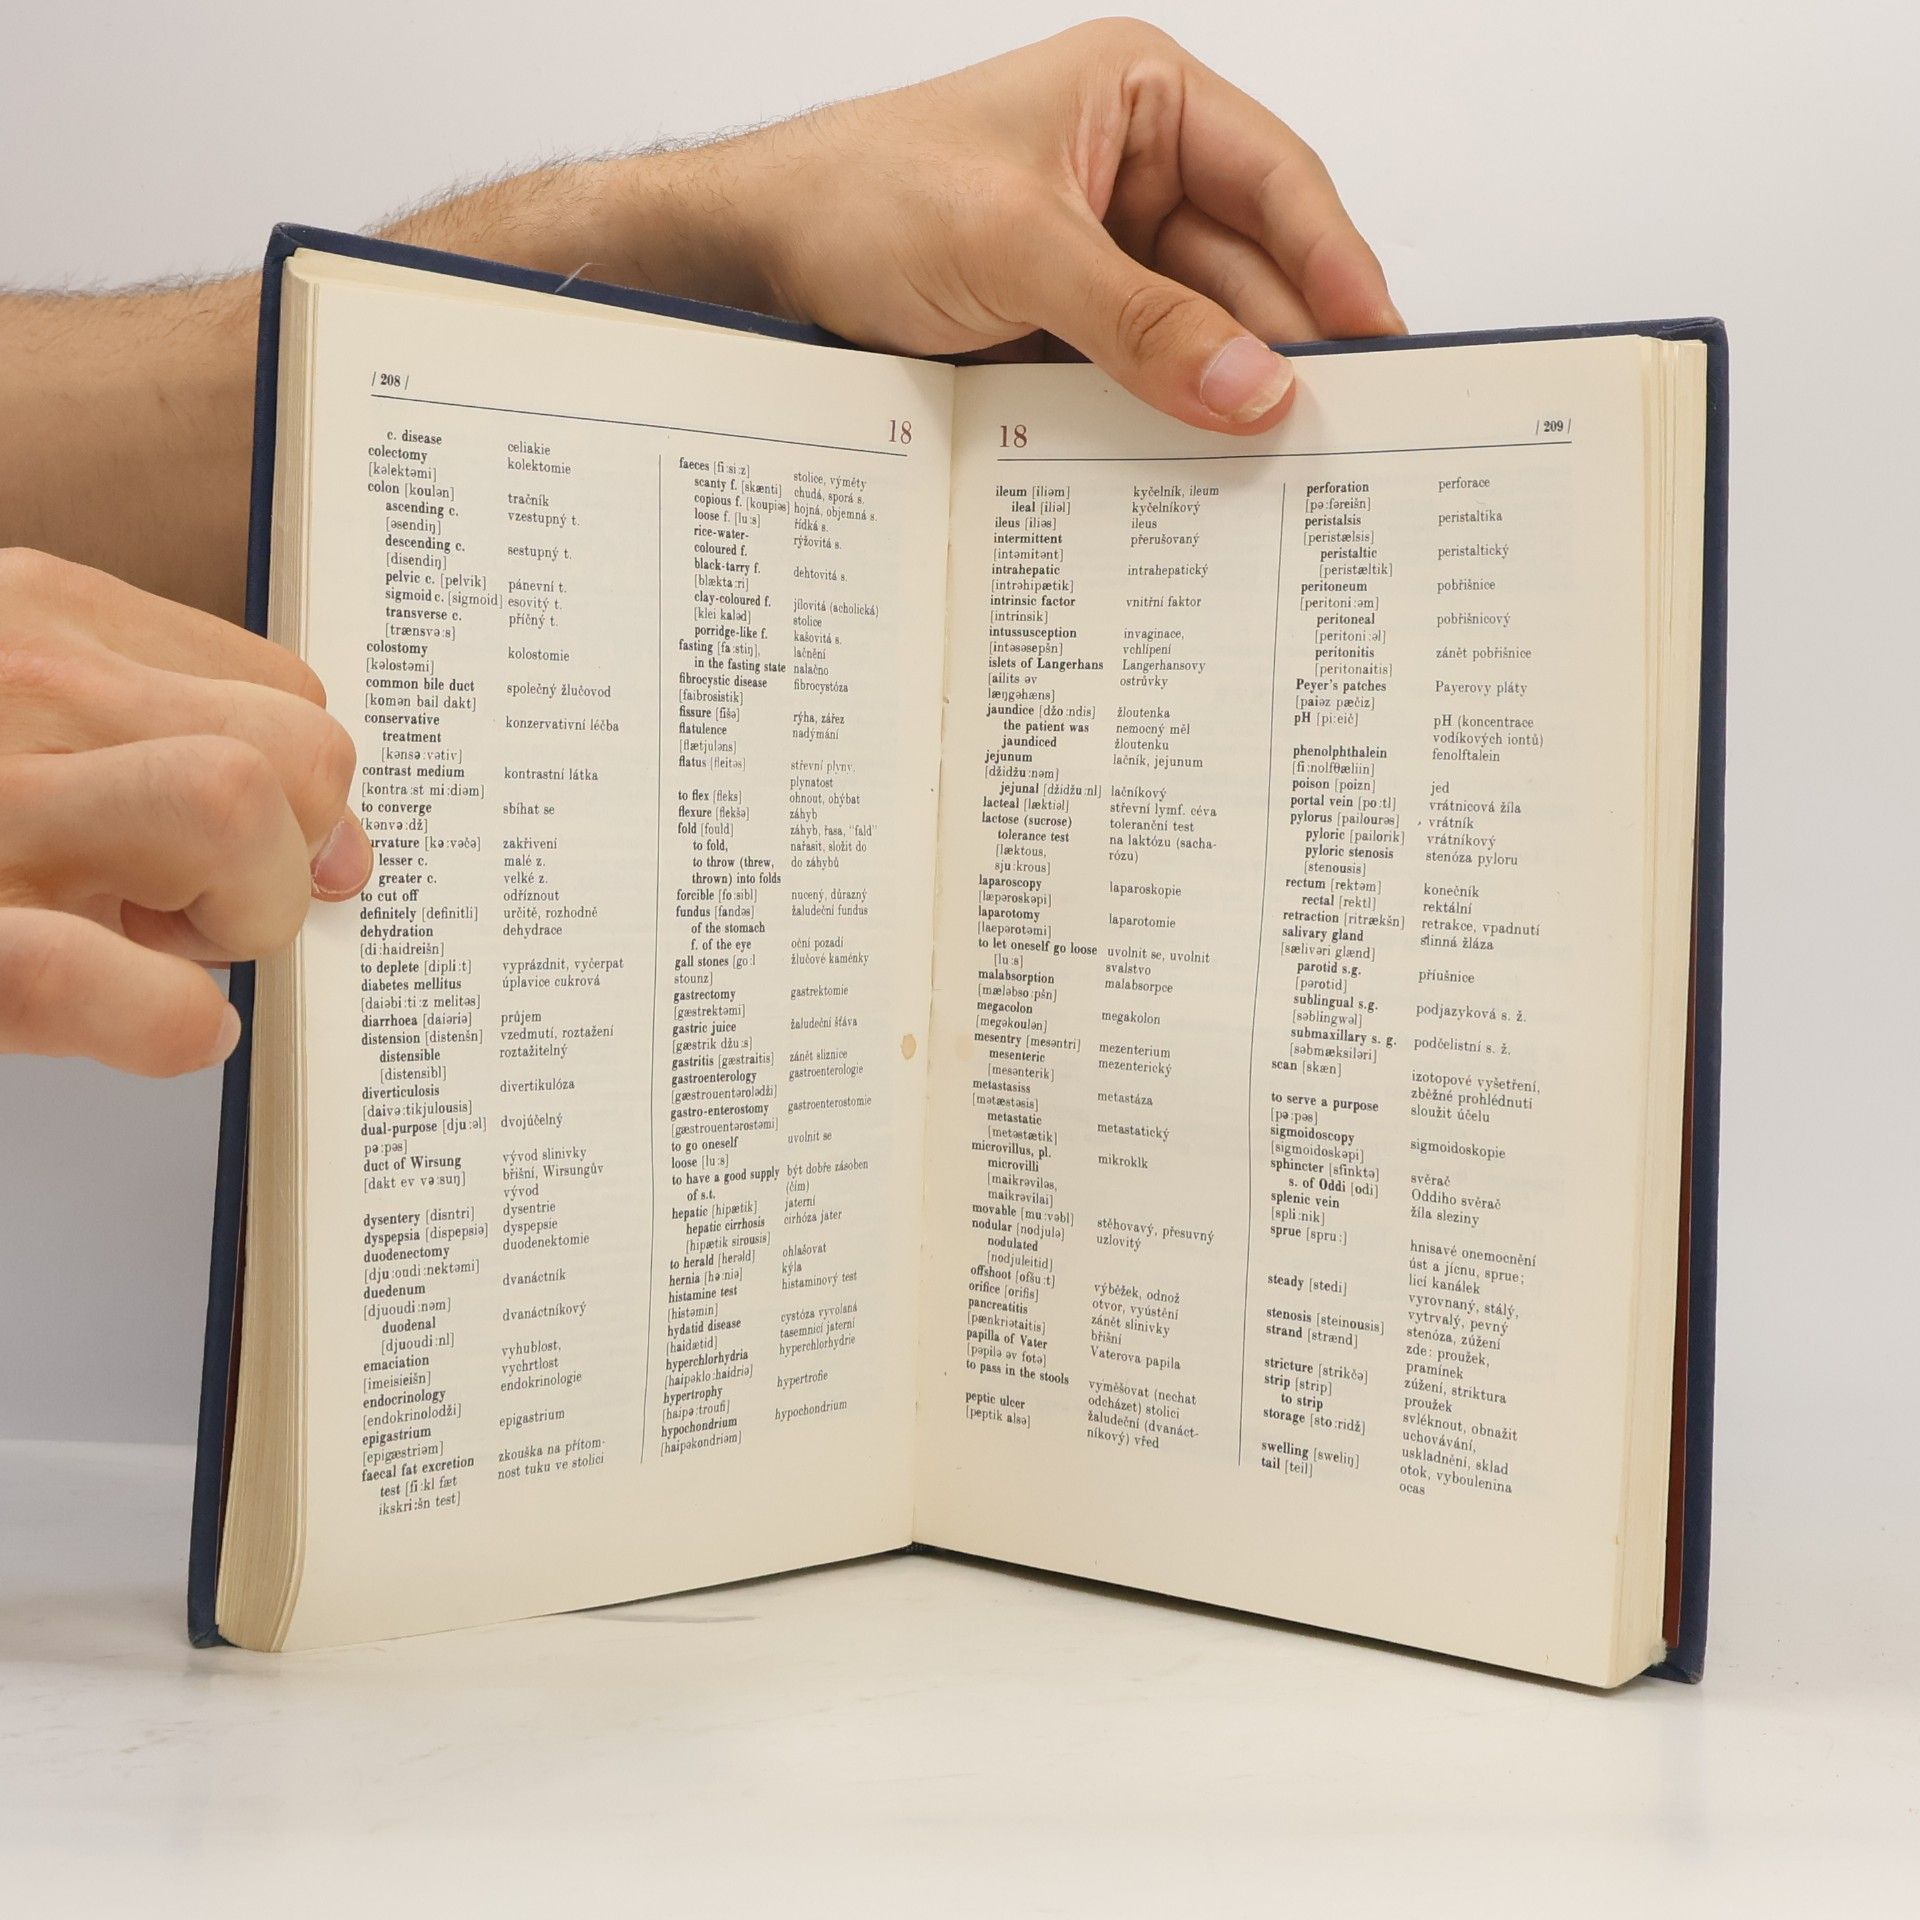 / 208 /
18
c. disease celiakie
colectomy kolektomie
[kəlektəmi]
colon [koulən] tračník
ascending c. vzestupný t.
[əsendiŋ]
descending c. sestupný t.
[disendiŋ]
pelvic c. [pelvik] pánevní t.
sigmoid c. [sigmoid] esovitý t.
transverse c. příčný t.
[trænsvə:s]
colostomy kolostomie
[kəlostəmi]
common bile duct společný žlučovod
[komən bail dakt]
conservative konzervativní léčba
treatment
[kənsə:vətiv]
contrast medium kontrastní látka
[kontra:st mi:diəm]
to converge sbíhat se
[kənvə:dž]
urvature [kə:vəčə] zakřivení
lesser c. malé z.
greater c. velké z.
to cut off odříznout
definitely [definitli] určitě, rozhodně
dehydration dehydrace
[di:haidreišn]
to deplete [dipli:t] vyprázdnit, vyčerpat
diabetes mellitus úplavice cukrová
[daiəbi:ti:z melitəs]
diarrhoea [daiəriə] průjem
distension [distenšn] vzedmutí, roztažení
distensible roztažitelný
[distensibl]
diverticulosis divertikulóza
[daivə:tikjulousis]
dual-purpose [dju:əl dvojúčelný
pə:pəs]
duct of Wirsung vývod slinivky
[dakt ev və:suŋ] břišní, Wirsungův
vývod
dysentery [disntri] dysentrie
dyspepsia [dispepsiə] dyspepsie
duodenectomy duodenektomie
[dju:oudi:nektəmi]
duedenum dvanáctník
[djuoudi:nəm]
duodenal dvanáctníkový
[djuoudi:nl]
emaciation vyhublost,
[imeisieišn] vychrtlost
endocrinology endokrinologie
[endokrinolodži]
epigastrium epigastrium
[epigæstriəm]
faecal fat excretion zkouška na přítom-
test [fi:kl fæt nost tuku ve stolici
ikskri:šn test]
faeces [fi:si:z] stolice, výměty
scanty f. [skænti] chudá, sporá s.
copious f. [koupiəs] hojná, objemná s.
loose f. [lu:s] řídká s.
rice-water- rýžovitá s.
coloured f.
black-tarry f. dehtovitá s.
[blækta:ri]
clay-coloured f. jílovitá (acholická)
[klei kaləd] stolice
porridge-like f. kašovitá s.
fasting [fa:stiŋ], lačnění
in the fasting state nalačno
fibrocystic disease fibrocystóza
[faibrosistik]
fissure [fišə] rýha, zářez
flatulence nadýmání
[flætjuləns]
flatus [fleitəs] střevní plyny,
plynatost
to flex [fleks] ohnout, ohýbat
flexure [flekšə] záhyb
fold [fould] záhyb, řasa, "fald"
to fold, nařasit, složit do
to throw (threw, do záhybů
thrown) into folds
forcible [fo:sibl] nucený, důrazný
fundus [fandəs] žaludeční fundus
of the stomach
f. of the eye oční pozadí
gall stones [go:l žlučové kaménky
stounz]
gastrectomy gastrektomie
[gæstrektəmi]
gastric juice žaludeční šťáva
[gæstrik džu:s]
gastritis [gæstraitis] zánět sliznice
gastroenterology gastroenterologie
[gæstrouentərolədži]
gastro-enterostomy gastroenterostomie
[gæstrouentərostəmi]
to go oneself uvolnit se
loose [lu:s]
to have a good supply být dobře zásoben
of s.t. (čím)
hepatic [hipætik] jaterní
hepatic cirrhosis cirhóza jater
[hipætik sirousis]
to herald [herəld] ohlašovat
hernia [hə:niə] kýla
histamine test histaminový test
[histəmin]
hydatid disease cystóza vyvolaná
[haidətid] tasemnicí jaterní
hyperchlorhydria hyperchlorhydrie
[haipəklo:haidriə]
hypertrophy hypertrofie
[haipə:troufi]
hypochondrium hypochondrium
[haipəkondriəm]
18
/ 209 /
ileum [iliəm] kyčelník, ileum
ileal [iliəl] kyčelníkový
ileus [iliəs] ileus
intermittent přerušovaný
[intəmitənt]
intrahepatic intrahepatický
[intrəhipætik]
intrinsic factor vnitřní faktor
[intrinsik]
intussusception invaginace,
[intəsəsepšn] vchlípení
islets of Langerhans Langerhansovy
[ailits əv ostrůvky
læŋgəhæns]
jaundice [džo:ndis] žloutenka
the patient was nemocný měl
jaundiced žloutenku
jejunum lačník, jejunum
[džidžu:nəm]
jejunal [džidžu:nl] lačníkový
lacteal [læktiəl] střevní lymf. céva
lactose (sucrose) toleranční test
tolerance test na laktózu (sacha-
[læktous, rózu)
sju:krous]
laparoscopy laparoskopie
[læpəroskəpi]
laparotomy laparotomie
[laepərotəmi]
to let oneself go loose uvolnit se, uvolnit
[lu:s] svalstvo
malabsorption malabsorpce
[mæləbso:pšn]
megacolon megakolon
[megəkoulən]
mesentry [mesəntri] mezenterium
mesenteric mezenterický
[mesənterik]
metastasiss metastáza
[mətæstəsis]
metastatic metastatický
[metəstætik]
microvillus, pl. mikroklk
microvilli
[maikrəviləs,
maikrəvilai]
movable [mu:vəbl] stěhovavý, přesuvný
nodular [nodjulə] uzlovitý
nodulated
[nodjuleitid]
offshoot [ofšu:t] výběžek, odnož
orifice [orifis] otvor, vyústění
pancreatitis zánět slinivky
[pænkriətaitis] břišní
papilla of Vater Vaterova papila
[pəpilə əv fotə]
to pass in the stools vyměšovat (nechat
odcházet) stolici
peptic ulcer žaludeční (dvanáct-
[peptik alsə] níkový) vřed
perforation perforace
[pə:fəreišn]
peristalsis peristaltika
[peristælsis]
peristaltic peristaltický
[peristæltik]
peritoneum pobřišnice
[peritoni:əm]
peritoneal pobřišnicový
[peritoni:əl]
peritonitis zánět pobřišnice
[peritonaitis]
Peyer's patches Payerovy pláty
[paiəz pæčiz]
pH [pi:eič] pH (koncentrace
vodíkových iontů)
phenolphthalein fenolftalein
[fi:nolfθæliin]
poison [poizn] jed
portal vein [po:tl] vrátnicová žíla
pylorus [pailourəs] vrátník
pyloric [pailorik] vrátníkový
pyloric stenosis stenóza pyloru
[stenousis]
rectum [rektəm] konečník
rectal [rektl] rektální
retraction [ritrækšn] retrakce, vpadnutí
salivary gland slinná žláza
[sælivəri glænd]
parotid s.g. příušnice
[pərotid]
sublingual s.g. podjazyková s. ž.
[səblingwəl]
submaxillary s. g. podčelistní s. ž.
[səbmæksiləri]
scan [skæn] izotopové vyšetření,
zběžné prohlédnutí
to serve a purpose sloužit účelu
[pə:pəs]
sigmoidoscopy sigmoidoskopie
[sigmoidoskəpi]
sphincter [sfinktə] svěrač
s. of Oddi [odi] Oddiho svěrač
splenic vein žíla sleziny
[spli:nik]
sprue [spru:] hnisavé onemocnění
úst a jícnu, sprue;
licí kanálek
steady [stedi] vyrovnaný, stálý,
vytrvalý, pevný
stenosis [steinousis] stenóza, zúžení
strand [strænd] zde: proužek,
pramínek
stricture [strikčə] zúžení, striktura
strip [strip] proužek
to strip svléknout, obnažit
storage [sto:ridž] uchovávání,
uskladnění, sklad
swelling [sweliŋ] otok, vyboulenina
tail [teil] ocas